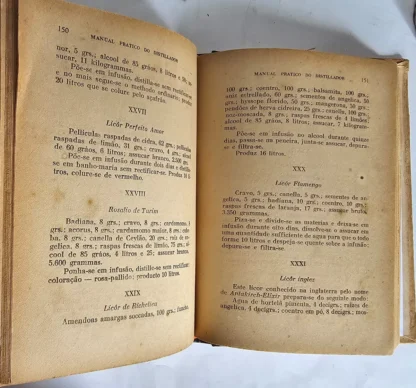 150
MANUAL PRATICO DO DISTILLADOR
nor, 5 grs.; alcool de 85 gráos, 8 litros
sucar, 11 kilogrammas.
Põe-se em infusão, distilla-se sem rectificar
e no mais segue-se o methodo ordinario,
20 litros que se colore pelo açafrão.
XXVII
Licôr Perfeito Amor
Pelliculas raspadas de cidra, 62 grs., pelliculas
raspadas de limão, 31 grs.; cravo, 4 grs.; alcool
de 60 gráos, 6 litros; assucar branco, 2.500 gr.
Põe-se em infusão durante dois dias e distilla-se
em banho-maria sem rectificar-se. Produz 10 li-
tros, colore-se de vermelho.
XXVIII
Rosolio de Turim
Badiana, 8 grs.; cravo, 8 grs.; cardamomo,
grs.; acorus, 8 grs.; cardamomo maior, 8 grs.;
ba, 8 grs.; canella de Ceylão, 20 grs.; raiz de
gelica, 8 grs. raspas frescas de limão, 75 grs.; al-
cool de 85 gráos, 4 litros e 25; assucar branco,
5.600 grammas.
Ponha-se em infusão, distille-se sem rectificar:
coloração — rosa-pallido: producto 10 litros.
XXIX
Licôr de Richelieu
Amendoas amargas soccadas, 100 grs.;
MANUAL PRATICO DO DISTILLADOR
151
100 grs.; coentro, 100 grs.; balsamita, 100 grs.;
aniz estrellado, 60 grs.; sementes de angelica, 50
grs.; hyssope florido, 50 grs.; mangerona, 50 grs.;
de herva cidreira, 25 grs.; canella, 100 grs.;
noz-moscada, 8 grs.; raspas frescas de 4 limões;
alcool de 85 gráos, 8 litros; assucar, 7 kilogram-
mas.
Põe-se em infusão no alcool durante quinze
dias, passe-se na peneira, junta-se assucar, depura-
se e filtra-se.
Produz 16 litros.
XXX
Licôr Flamengo
Cravo, 5 grs.; canella, 5 grs.; sementes de an-
gelica, 5 grs.; badiana, 10 grs.; coentro, 10 grs.;
raspas frescas de laranja, 17 grs.; assucar bruto,
3.250 grammas.
Piza-se e divide-se as materias e deixa-se em
infusão durante oito dias, dissolve-se o assucar em
uma quantidade sufficiente de agua para que o todo
forme 10 litros e despeja-se quente sobre a infusão:
depura-se e filtra-se.
XXXI
Licôr inglez
Este licor conhecido na inglaterra pelo nome
de prepara-se do seguinte modo:
Agua de hortelã pimenta, 4 decigrs.; raizes de
angelica, 4 decigrs.; coentro em pó, 8 decigrs.; mos-